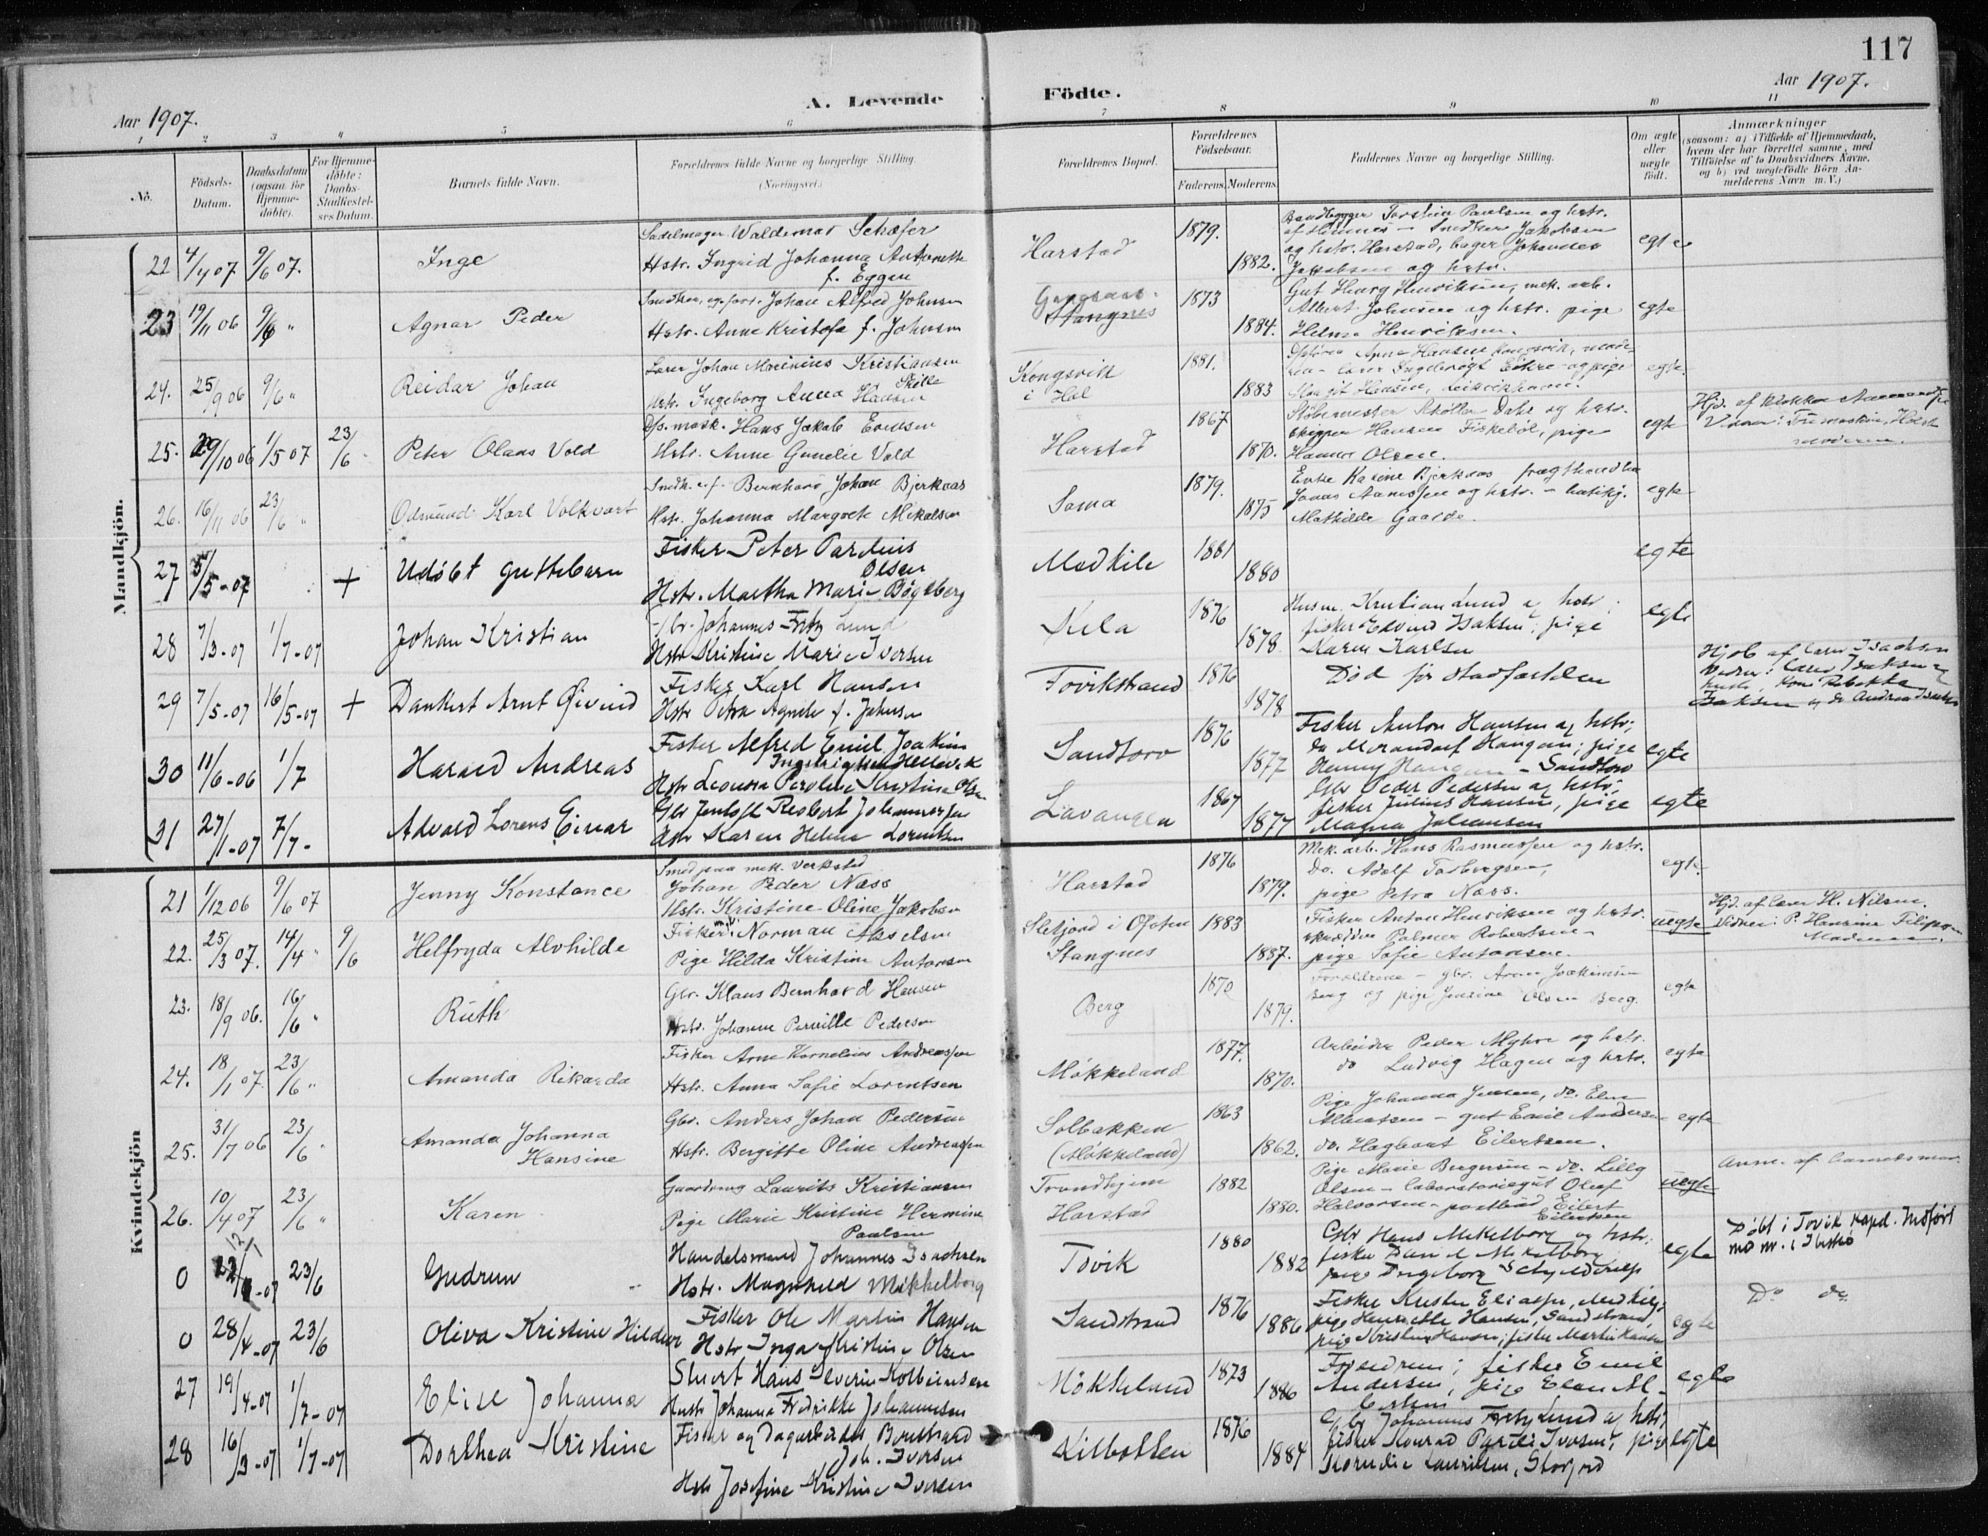 117
Aar 1907.
A. Levende Födte.
Aar 1907.
1 2 3 4 5 6 7 8 9 10 11
No.
Födsels-Datum.
Daabsdatum (ogsaa for Hjemme-döbte).
For Hjemme-döbte: Daabs-Stadfæstel-ses Datum.
Barnets fulde Navn.
Forældrenes fulde Navne og borgerlige Stilling. (Næringsvei.)
Forældrenes Bopæl.
Forældrenes Födselsaar.
Faderens. Moderens.
Faddernes Navne og borgerlige Stilling.
Om ægte eller uægte födt.
Anmærkninger
(saasom: a) i Tilfælde af Hjemmedaab, hvem der har forrettet samme, med Tilföielse af to Daabsvidners Navne, og b) ved uægtefödte Börn An-melderens Navn m. V.)
Mandkjön.
22 4/4 07 9/6 07. Inge
Sadelmager Waldemar Schæfer
Hstr. Ingrid Johanna Antonette f. Eggen
Harstad 1879. 1882.
Torstein Paulsen og hstr.
Jakobsen
og hstr. Harstad, bager Johannes
Jakobsen og hstr.
egte
23 19/11 06 9/6 " Agnar Peder
Johan Alfred Johnsen
Hstr. Anne Kristofa f. Johnsen
Gangsaas. Stangnes 1873 1884.
Gut Henrik Henriksen, mek. arb.
Albert Johnsen og hstr. pige
Helma Henriksen.
egte
24. 25/9 06 9/6 " Reidar Johan
Lærer Johan Marinius Kristiansen
Hstr. Ingeborg Anna Hansen
Kongsvik i Hol 1881. 1883
Anne Hansen Kongsvik,
lærer Ingebrigt Eikre og pige
Hansen,
egte.
25. 29/10 06 1/5 07 23/6 Peter Olaus Vold
Ds.mask. Hans Jakob Evensen
Hstr. Anne Gunelie Vold
Harstad 1867 1870.
Støbermester Dahl og hstr.
skipper Hansen Fiskebøl, pige
Hanna Olsen.
egt
Hjd. af klokker
26. 16/11 06 23/6 " Odmund Karl Volkvart
Snedk. Bernhard Johan Bjerkaas
Hstr. Johanna Margrete Mikalsen
Sama 1879. 1875
Enke Karine Bjerkaas fragthandler
og hstr. – butikj.
Mathilde Gaarde.
egte
27 5/5-07 + Udöbt guttebarn
Fisker Peter Parelius Olsen
Hstr. Martha Marie Bøgeberg
Medkile 1881 1880
egte
28 7/3-07 1/7-07 Johan Kristian
Gbr. Johannes Fritz Lund
Hstr Kristine Marie Iversen
Kila 1876 1878
Husm. Kristian Lund og hstr;
fisker Edvard Isaksen; pige
Karen Karlsen
egte
29 7/5-07 16/5-07 + Dankert Arnt Øivind
Fisker Karl Hansen
Hstr Petra Agnete f. Johnsen
Tovikstrand 1876 1878
Død før stadfæstelsen
Hjdb af lærer Isachsen
Vidner: lærer Isaksen og
hustr, Kone Rebekka
Isaksen og do Andrea Isaksen
30 11/6-06 1/7 Harald Andreas
Fisker Alfred Emil Joakim
Ingebrigtsen Hellevik
Hstr Leonora Pernille Kristine Olsen
Sandtorv 1876 1877
Fisker Anton Hansen og hstr;
do Merandorf Haugan; pige
Henny Haugan – Sandtorv
egte
31 27/1-07 7/7- Alvald Lorens Einar
Gbr Jentoft Redbert Johannessen
Hstr Karen Helene Lorentsen
Lavangen 1867 1877
Gbr Peder Pedersen og hstr;
fisker Julius Hansen, pige
Magna Johansen
egte
Kvindekjön
21 1/12 06 9/6 07 Jenny Konstance
Smed paa mek. Verksted
Johan Peder Næss
Hstr. Kristine Oline Jakobsen
Harstad 1876 1879.
Mek. arb. Hans Rasmussen og hstr.
Do. Adolf Torbergsen,
pige Petra Næss.
egte.
22. 25/3 07. 14/4 " 9/6 Helfryda Alvhilde
Fisker Norman Akselsen
Pige Hilda Kristine Antonsen
Sletjord i Ofoten Stangnes 1883 1887.
Fisker Anton Henriksen og hstr.
skrædder Palmer Robertsen –
pige Sofie Antonsen.
uegte
Hjd. af lærer H. Nilsen.
Vidner: P. Hansine Filipsen
Moderen.
23. 18/9 06. 16/6 " Ruth
Gbr. Klaus Bernhard Hansen
Hstr. Johanne Pernille Pedersen
Berg 1870 1879.
Forældrene – gbr. Arne Joakimsen
Berg og pige Jensine Olsen Berg.
egte
24. 18/1 07. 23/6 " Amanda Rikarda
Fisker Arne Kornelius Andreassen
Hstr. Anna Sofie Lorentsen
Møkkeland 1877. 1870.
Arbeider Peder Myhre og hstr.
do Ludvig Hagen og hstr.
egte
25. 31/7 06 23/6 " Amanda Johanna Hansine
Gbr. Anders Johan Pedersen
Hstr. Bergitte Oline Andreassen
Solbakken (Møkkeland) 1863 1862.
Pige Johanna Jensen, do. Elen
Albertsen – gut Emil Andersen
do. Hagbart Eilertsen.
egte
26. 10/4 07 23/6 " Karen
Gaardbrug Laurits Kristiansen
Pige Marie Kristine Hermine Paulsen
Trondhjem Harstad 1882 1880.
Pige Marie Bergersen – do. Lilly
Olsen – laboratoriegut Olaf
Halvorsen – postbud Eilert
Eilertsen
uegte
Anm. af barnets mor.
0 -07 23/6 Gudrun
Handelsmand Johannes Isachsen
Hstr. Magnhild Mikkelborg
Tovik 1880 1882
Gbr Hans Mikkelborg og hstr;
fisker Daniel Mikkelborg
pige Ingeborg Schjelderup
egte
Döbt i Tovik kapel. Indført
med nr. i Ibestad
0 28/4-07 23/6 Oliva Kristine Hildur
Fisker Ole Martin Hansen
Hstr Inga Kristine Olsen
Sandstrand 1876 1886
Fisker Kresten Eliassen, Medkile;
pige Henriette Hansen, Sandstrand,
pige Kristine Hansen; fisker Martin Hansen
egte
Do do.
27 19/4-07 1/7-07 Elise Johanna
Stuert Hans Severin Kolbeinsen
Hustr Johanna Fredrikke Johannesen
Møkkeland 1873 1886
Forældrene; fisker Emil
Andersen, pige Elen Al-
bertsen
egte
28 16/3-07 1/7-07 Dorthea Kristine
Fisker og Dagarbeider
Joh. Iversen
Hstr Josefine Kristine Iversen
Kilbotten 1876 1884
Gbr Johannes Fritz Lund og hstr;
fisker Konrad Iversen, pige
Kornelie Lauritsen, Storjord
egte